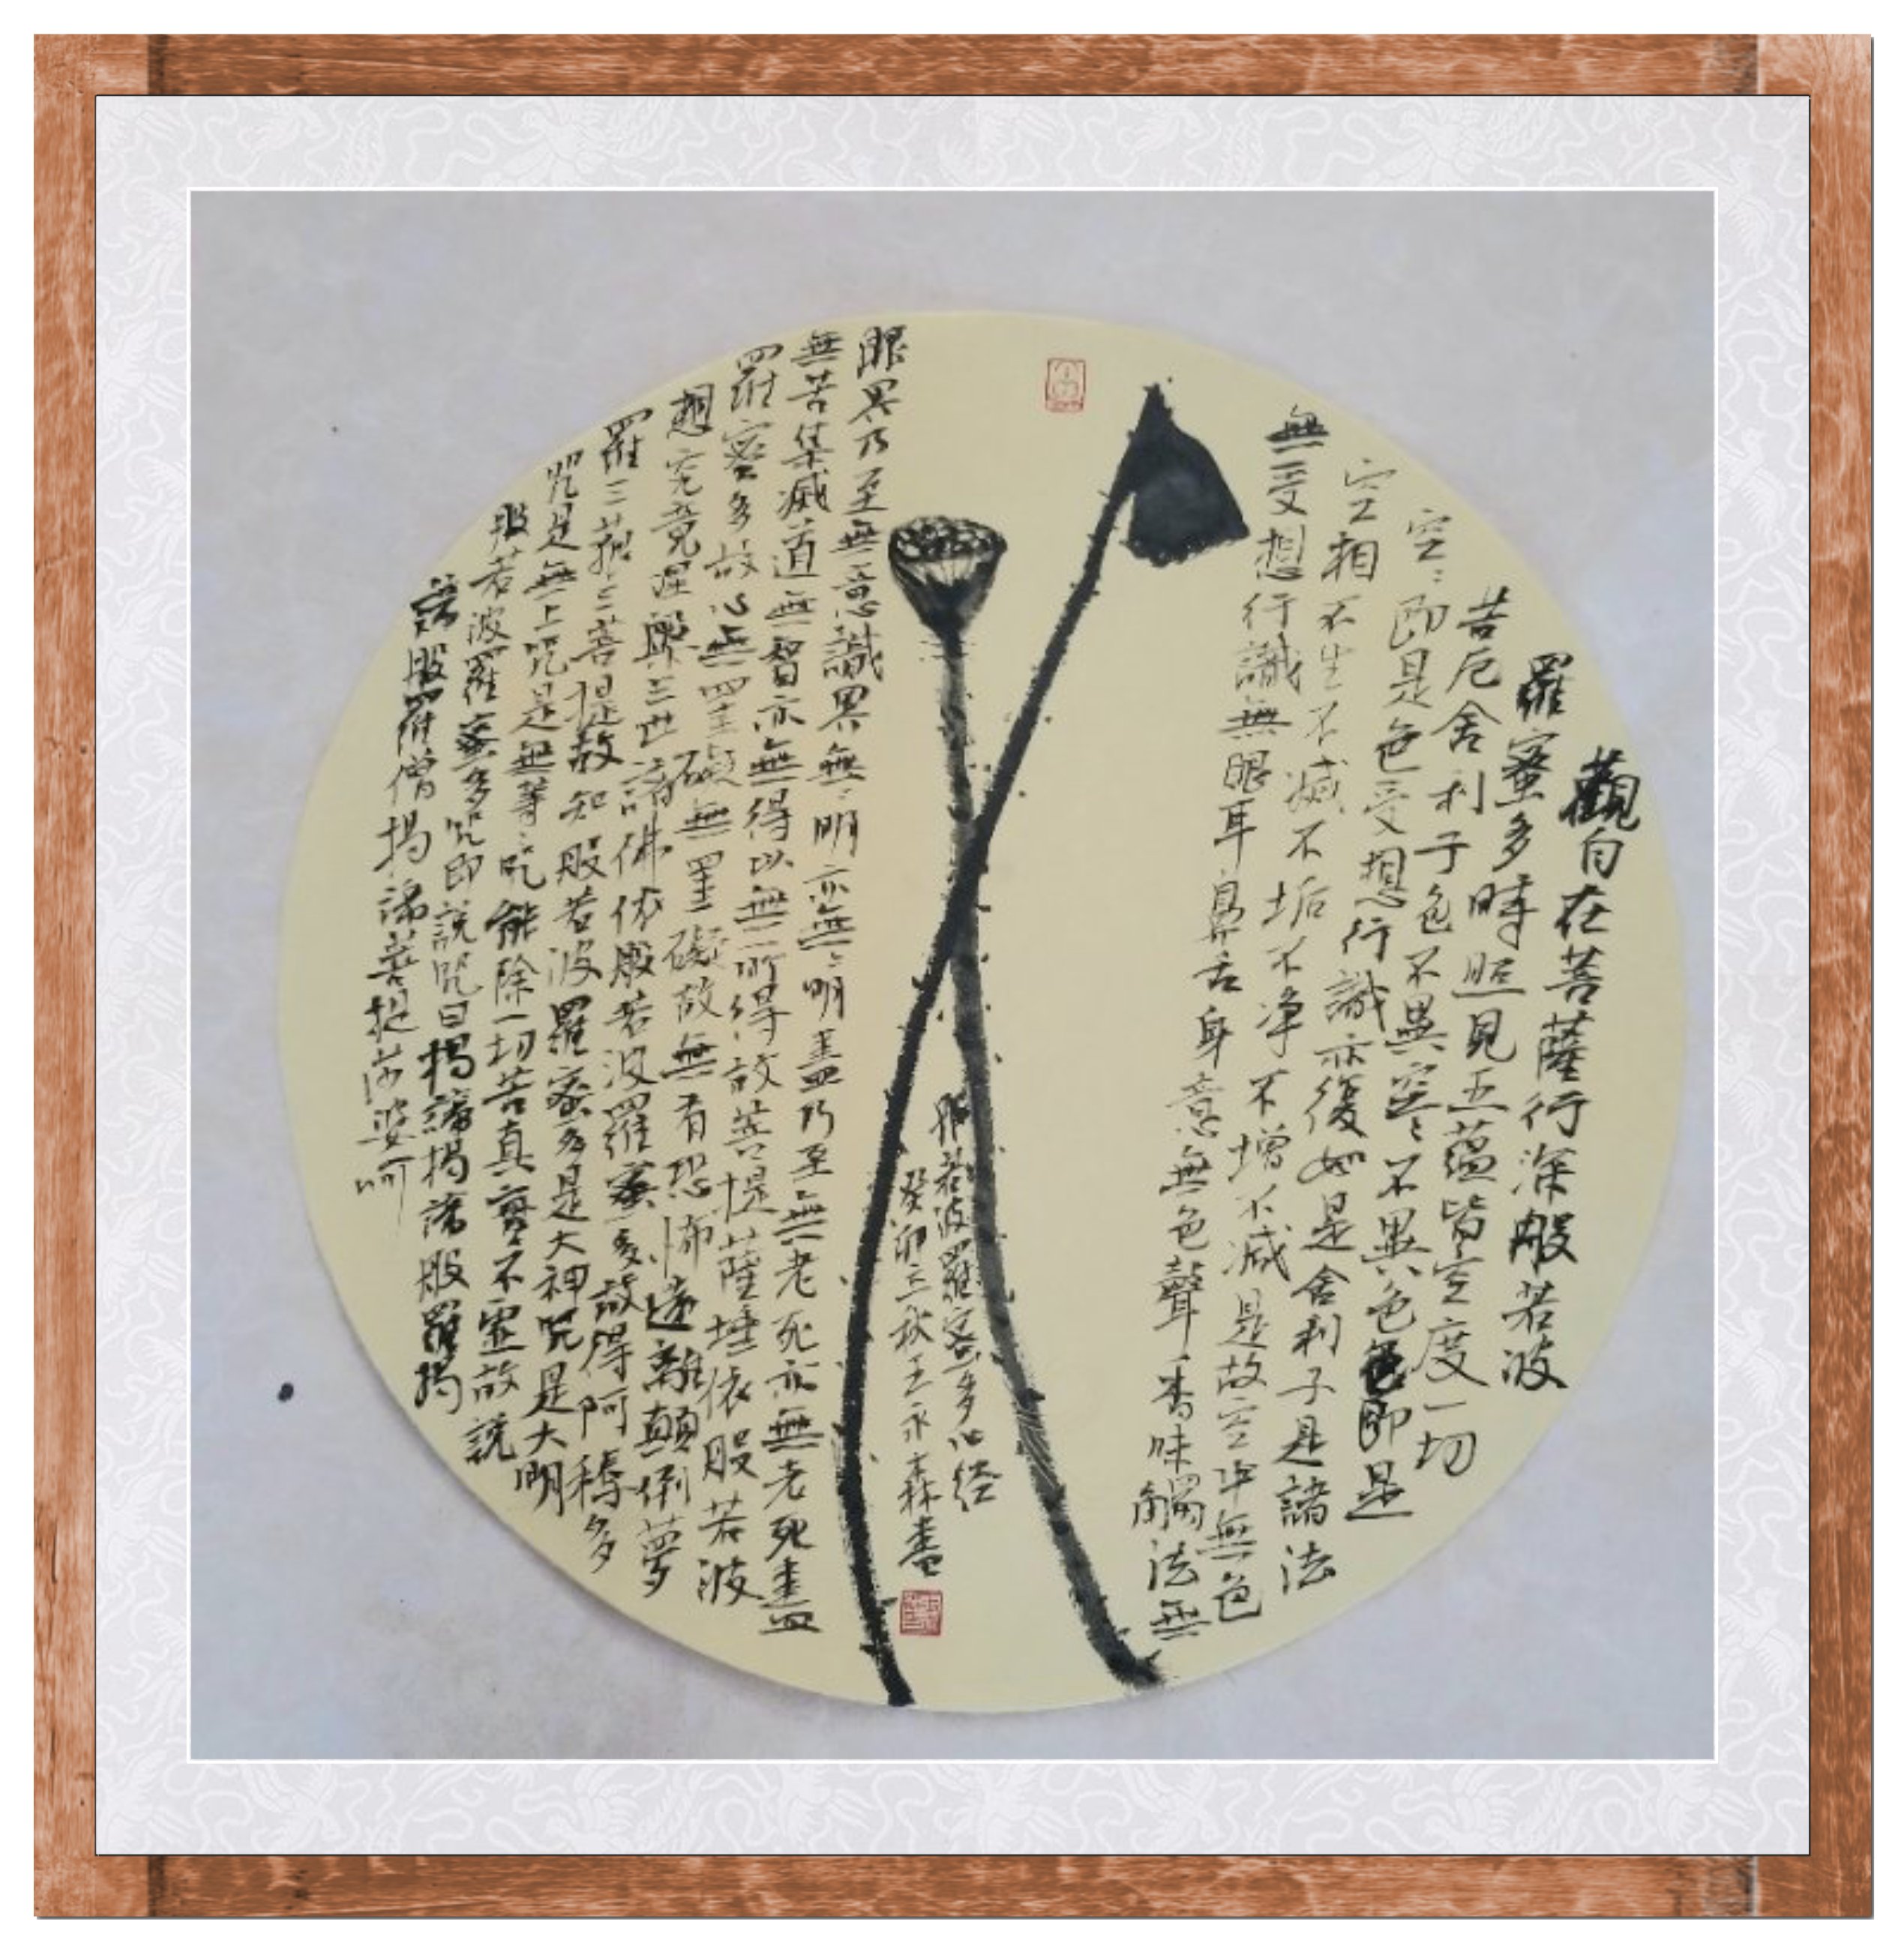 觀自在菩薩行深般若波
羅蜜多時照見五蘊皆空度一切
苦厄舍利子色不異空〻不異色色即是
空〻即是色受想行識亦復如是舍利子是諸法
空相不生不滅不垢不净不增不減是故空中無色
無受想行識無眼耳鼻舌身意無色聲香味觸法無
眼界乃至無意識界無〻明亦無〻明盡乃至無老死亦無老死盡
無苦集滅道無智亦無得以無所得故菩提薩埵依般若波
羅蜜多故心無罣礙無罣礙故無有恐怖遠離顛倒夢
想究竟涅槃三世諸佛依般若波羅蜜多故得阿稱多
羅三藐三菩提故知般若波羅蜜多是大神咒是大明
咒是無上咒是無等〻咒能除一切苦真實不虛故說
般若波羅蜜多咒即說咒曰揭諦揭諦般羅揭
諦般羅僧揭諦菩提莎婆呵
般若波羅密多心経
癸卯三秋王永森書